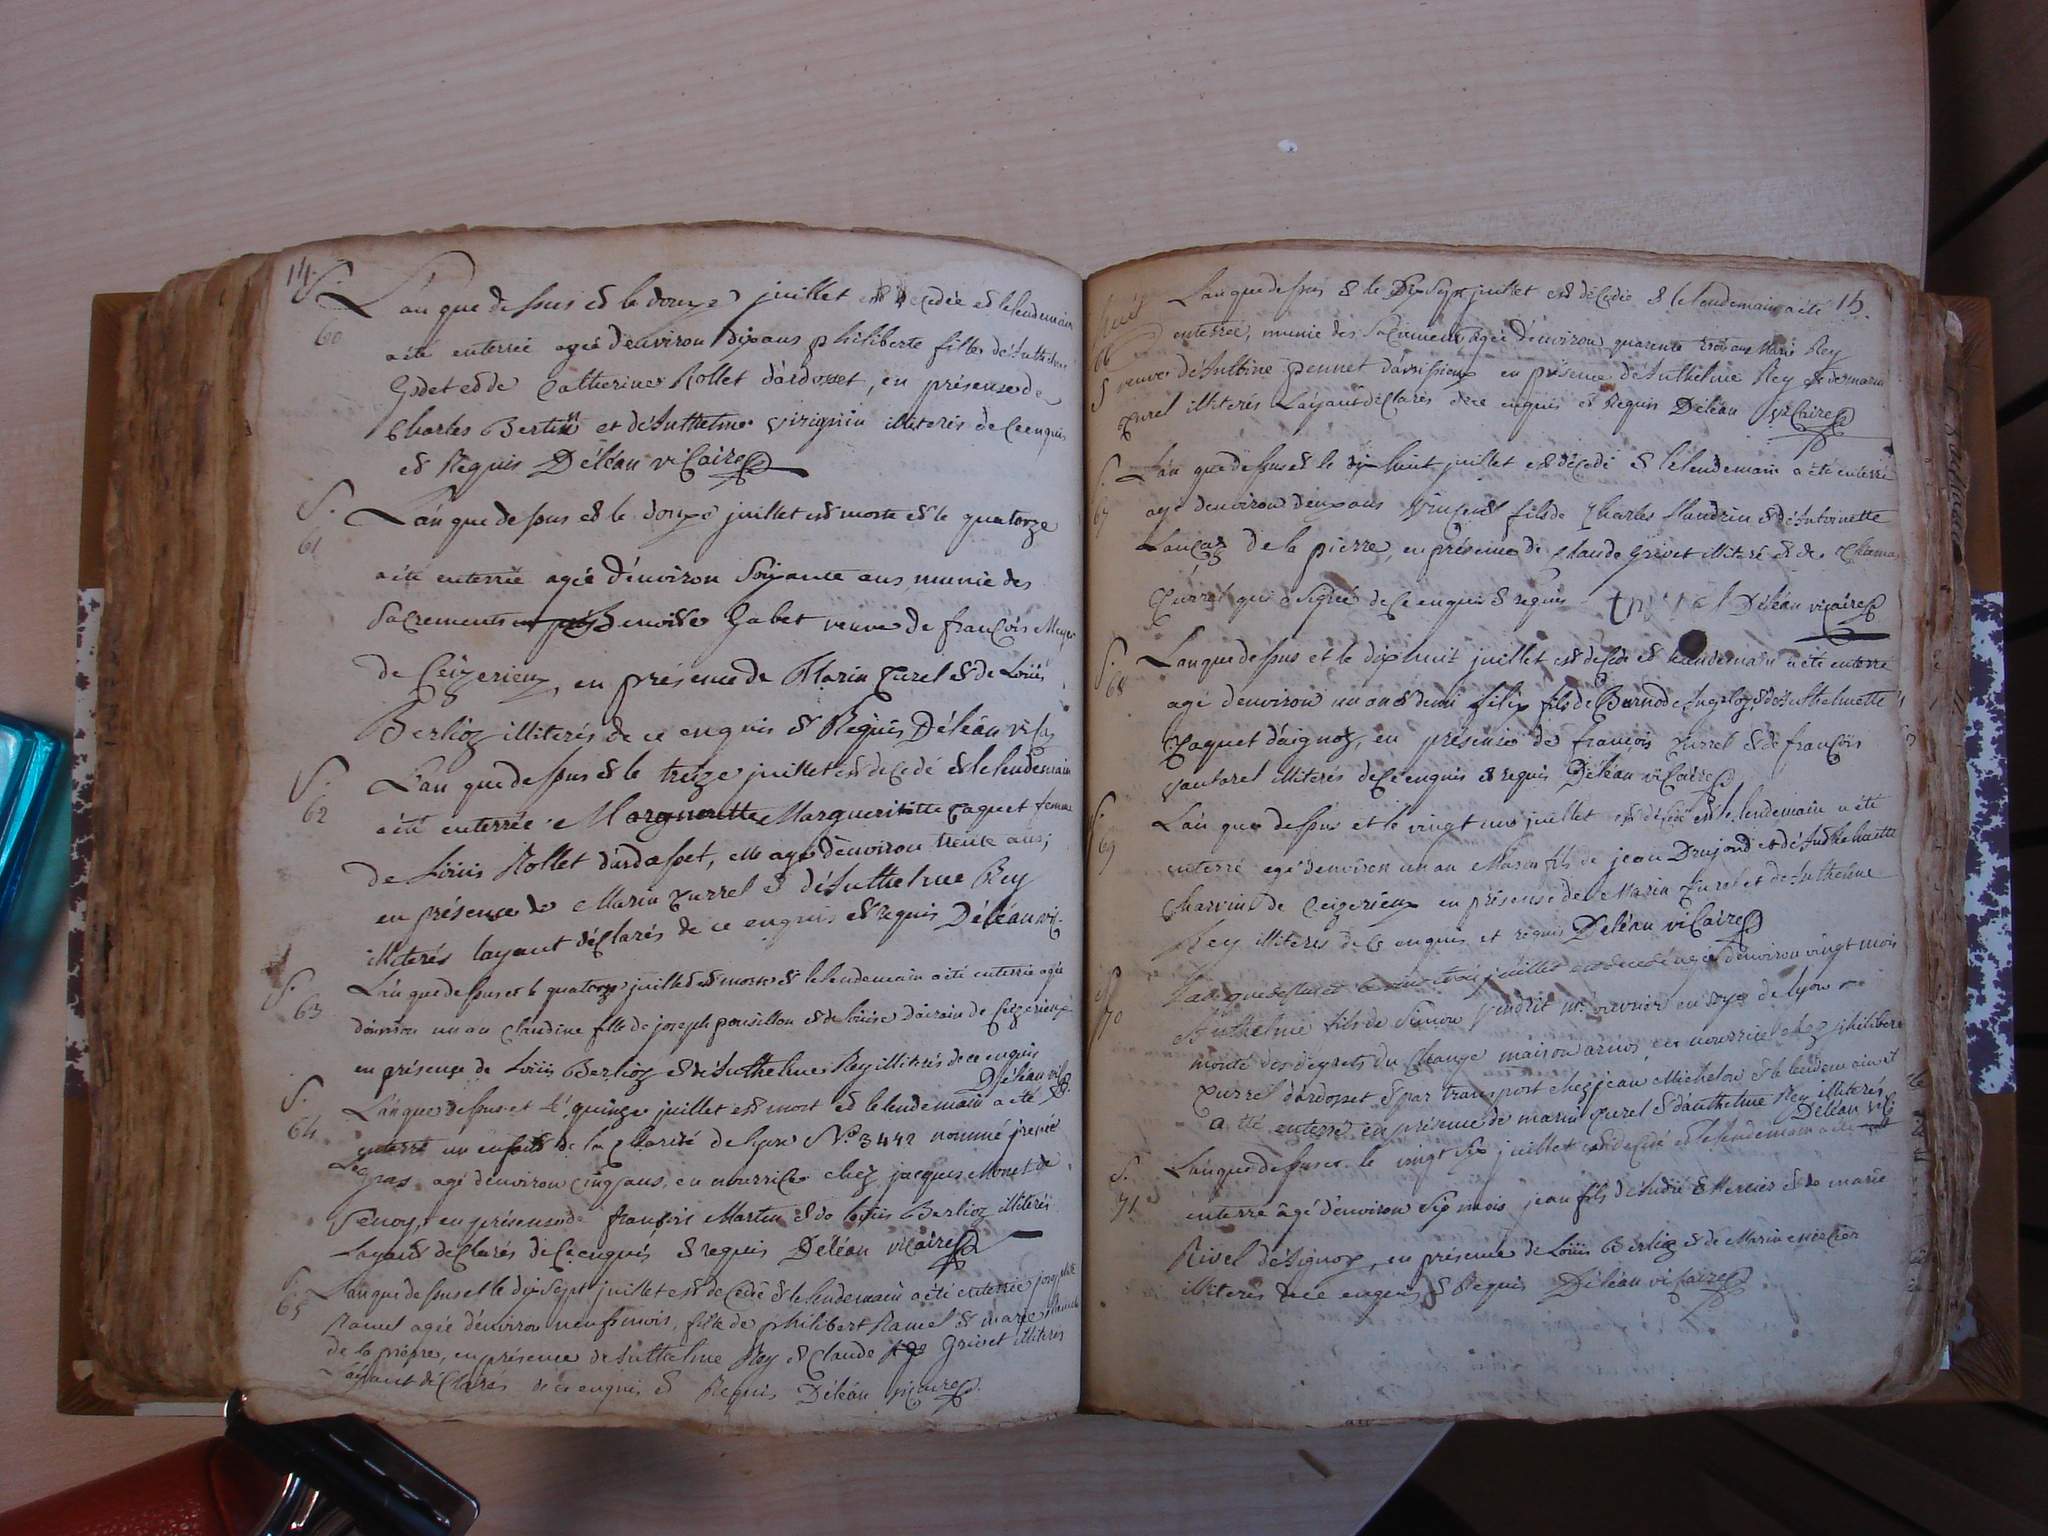 14.
S.
60
L'an que dessus et le douze juillet est decedée et le lendemain
a été enterrée agée d'environ dix ans philiberte fille d'Anthelme
Godet et de Catherine Rollet d'ardosset, en présense de
Charles Bertin et d'Anthelme Virignin illiterés de ce enquis
et Requis Déléan vicaire
S.
61
L'an que dessus et le douze juillet est morte et le quatorze
a été enterrée agée d'environ soixante ans, munie des
Sacrements Benoite Gabet veuve de françois Meyer
de Ceÿzerieux, en présence de Marin Turel et de Loüis
Berlioz illiterés de ce enquis et Requis Déléan vic
S.
62
L'an que dessus et le treize juillet est decedé et le lendemain
a été enterrée Margueritte Paquet femme
de Loüis Rollet d'ardosset, elle agée d'environ trente ans,
en présence de Marin Turrel et d'Anthelme Rey
illiterés layant déclarés de ce enquis et requis Déléan vic.
S.
63
L'an que dessus et le quatorze juillet est morte et le lendemain a été enterrée agée
d'environ un an claudine fille de joseph ponsillon et de Loüise dairain de Ceÿzerieux
en présence de Loüis Berlioz et d'Anthelme Rey illiterés de ce enquis
Déléan vic
S.
64
L'an que dessus et le quinze juillet est mort et le lendemain a été
enterré un enfant de la Charité de lyon No 3442 nommé
Legras agé d'environ cinq ans, en nourrice chez jacques Monet de
Senoy, en présense de françois Martin et de Loüis Berlioz illiterés
Layant declarés de ce enquis et requis Déléan vicaire
S.
65
L'an que dessus et le dix sept juillet est decedé et le lendemain a été enterrée josephte
Ramel agée d'environ neuf mois, fille de philibert Ramel et marie
de la pierre, en présence d'Anthelme Rey et Claude Grivet illiterés
Layant déclarés de ce enquis et Requis Déléan vicaire
15.
66
S
L'an que dessus et le Dix Sept juillet est décedée et le lendemain a été
enterrée, munie des Sacrements agée d'environ quarente trois ans Marie Rey
veuve d'Antoine Pennet d'avrissieux en présence d'Anthelme Rey et de marin
Turel illiterés Layant déclarés de ce enquis et Requis Déléan vicaire
S.
67
L'an que dessus et le dix huit juillet est décedé et le lendemain a été enterré
agé d'environ deux ans Vincent fils de Charles Mandrin et d'Antoinette
Lançaz de la pierre, en présence de Claude Grivet illiteré et de
Turrel qui a signé de ce enquis et requis Déléan vicaire
S.
68
L'an que dessus et le dix huit juillet est decedé et lendemain a été enterré
agé d'environ un an et demi félix fils de Burnod Angeloz et d'Anthelmette
Paquet d'aignoz, en présence de françois Turrel et de françois
vautarel illiterés de ce enquis et requis Déléan vicaire
S.
69
L'an que dessus et le vingt un juillet est décedé et le lendemain a été
enterré agé d'environ un an Marin fils de jean Drujond et d'Anthelmette
Charvin de Ceizerieux en présense de Marin Turel et d'Anthelme
Rey illiterés de ce enquis et requis Déléan vicaire
S.
70
L'an que dessus et le vingt trois juillet est decedé agé d'environ vingt mois
Anthelme fils de Simon Vindrit ouvrier en soye de lyon
monté des degrets du Change maison arnos, en nourrice chez philibert
Turrel d'ardosset et par transport chez jean Michelon et le lendemain
a été enterré en présence de marin Turel et d'anthelme Rey illiterés
Déléan vic
S.
71
L'an que dessus et le vingt six juillet est decedé et le lendemain a été
enterré âgé d'environ six mois jean fils d'André Mercier et de marie
Rivel d'Aignoz, en présence de Loüis Berlioz et de Marin mercier
illiterés de ce enquis et Requis Déléan vicaire